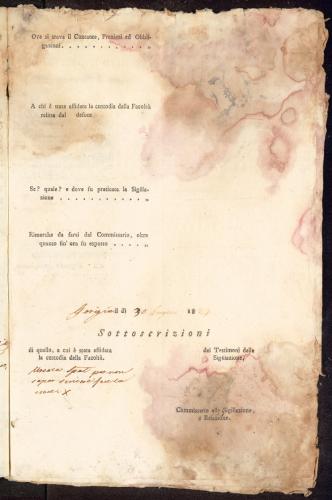 Ove si trova il Contante, Preziosi ed Obbli-
gazioni. . . . . . . . . . . . „
A chi è stata affidata la custodia della Facoltà
relitta dal defonto
Se? quale? e dove fu praticata la Sigilla-
zione . . . . . . . . . . . . „
Rimarche da farsi dal Commissario, oltre
quanto fin' ora fu esposto . . . . „
li dì 30 18
Sottoscrizioni
di quello, a cui è stata affidata
la custodia della Facoltà.
dei Testimonj della
Sigillazione,
per non
saper scrivere fece la
croce X
Commissario alla Sigillazione,
e Relazione.